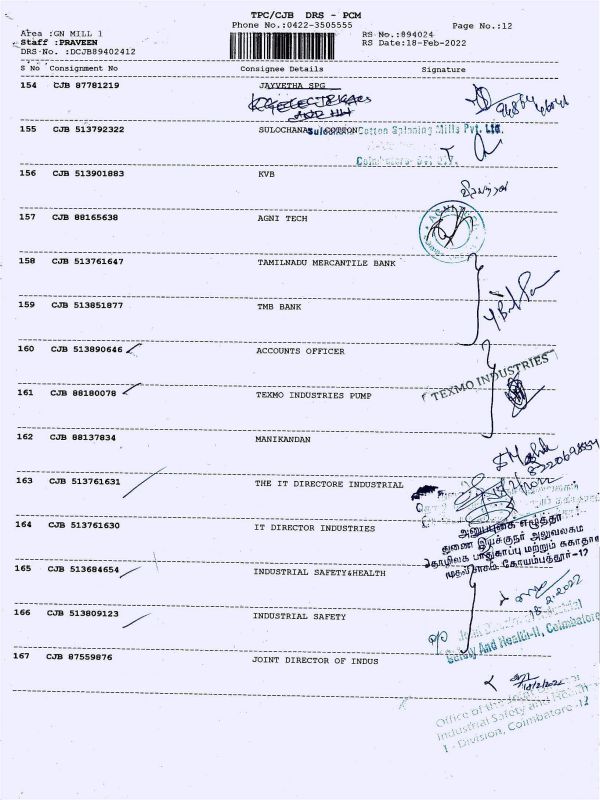 TPC/CJB DRS - PCM
Phone No.:0422-3505555
Page No.:12
Area :GN MILL 1
RS-No.:894024
Staff :PRAVEEN
RS Date:18-Feb-2022
DRS-No. :DCJB89402412
S No Consignment No Consignee Details Signature
154 CJB 87781219 JAYVETHA SPG
155 CJB 513792322 SULOCHANA COTTON
Sulochana Cotton Spinning Mills Pvt. Ltd.
156 CJB 513901883 KVB
157 CJB 88165638 AGNI TECH
158 CJB 513761647 TAMILNADU MERCANTILE BANK
159 CJB 513851877 TMB BANK
160 CJB 513890646 ACCOUNTS OFFICER
TEXMO INDUSTRIES
161 CJB 88180078 TEXMO INDUSTRIES PUMP
162 CJB 88137834 MANIKANDAN
163 CJB 513761631 THE IT DIRECTORE INDUSTRIAL
164 CJB 513761630 IT DIRECTOR INDUSTRIES
துணை இயக்குநர் அலுவலகம்
தொழிலக பாதுகாப்பு மற்றும் சுகாதார
கோயம்பத்தூர்-17
165 CJB 513684654 INDUSTRIAL SAFETY&HEALTH
18.2.2022
166 CJB 513809123 INDUSTRIAL SAFETY
Safety And Health-II, Coimbatore
167 CJB 87559876 JOINT DIRECTOR OF INDUS
18/2/2022
Office of the Joint Director
Industrial Safety and Health
I - Division, Coimbatore -12